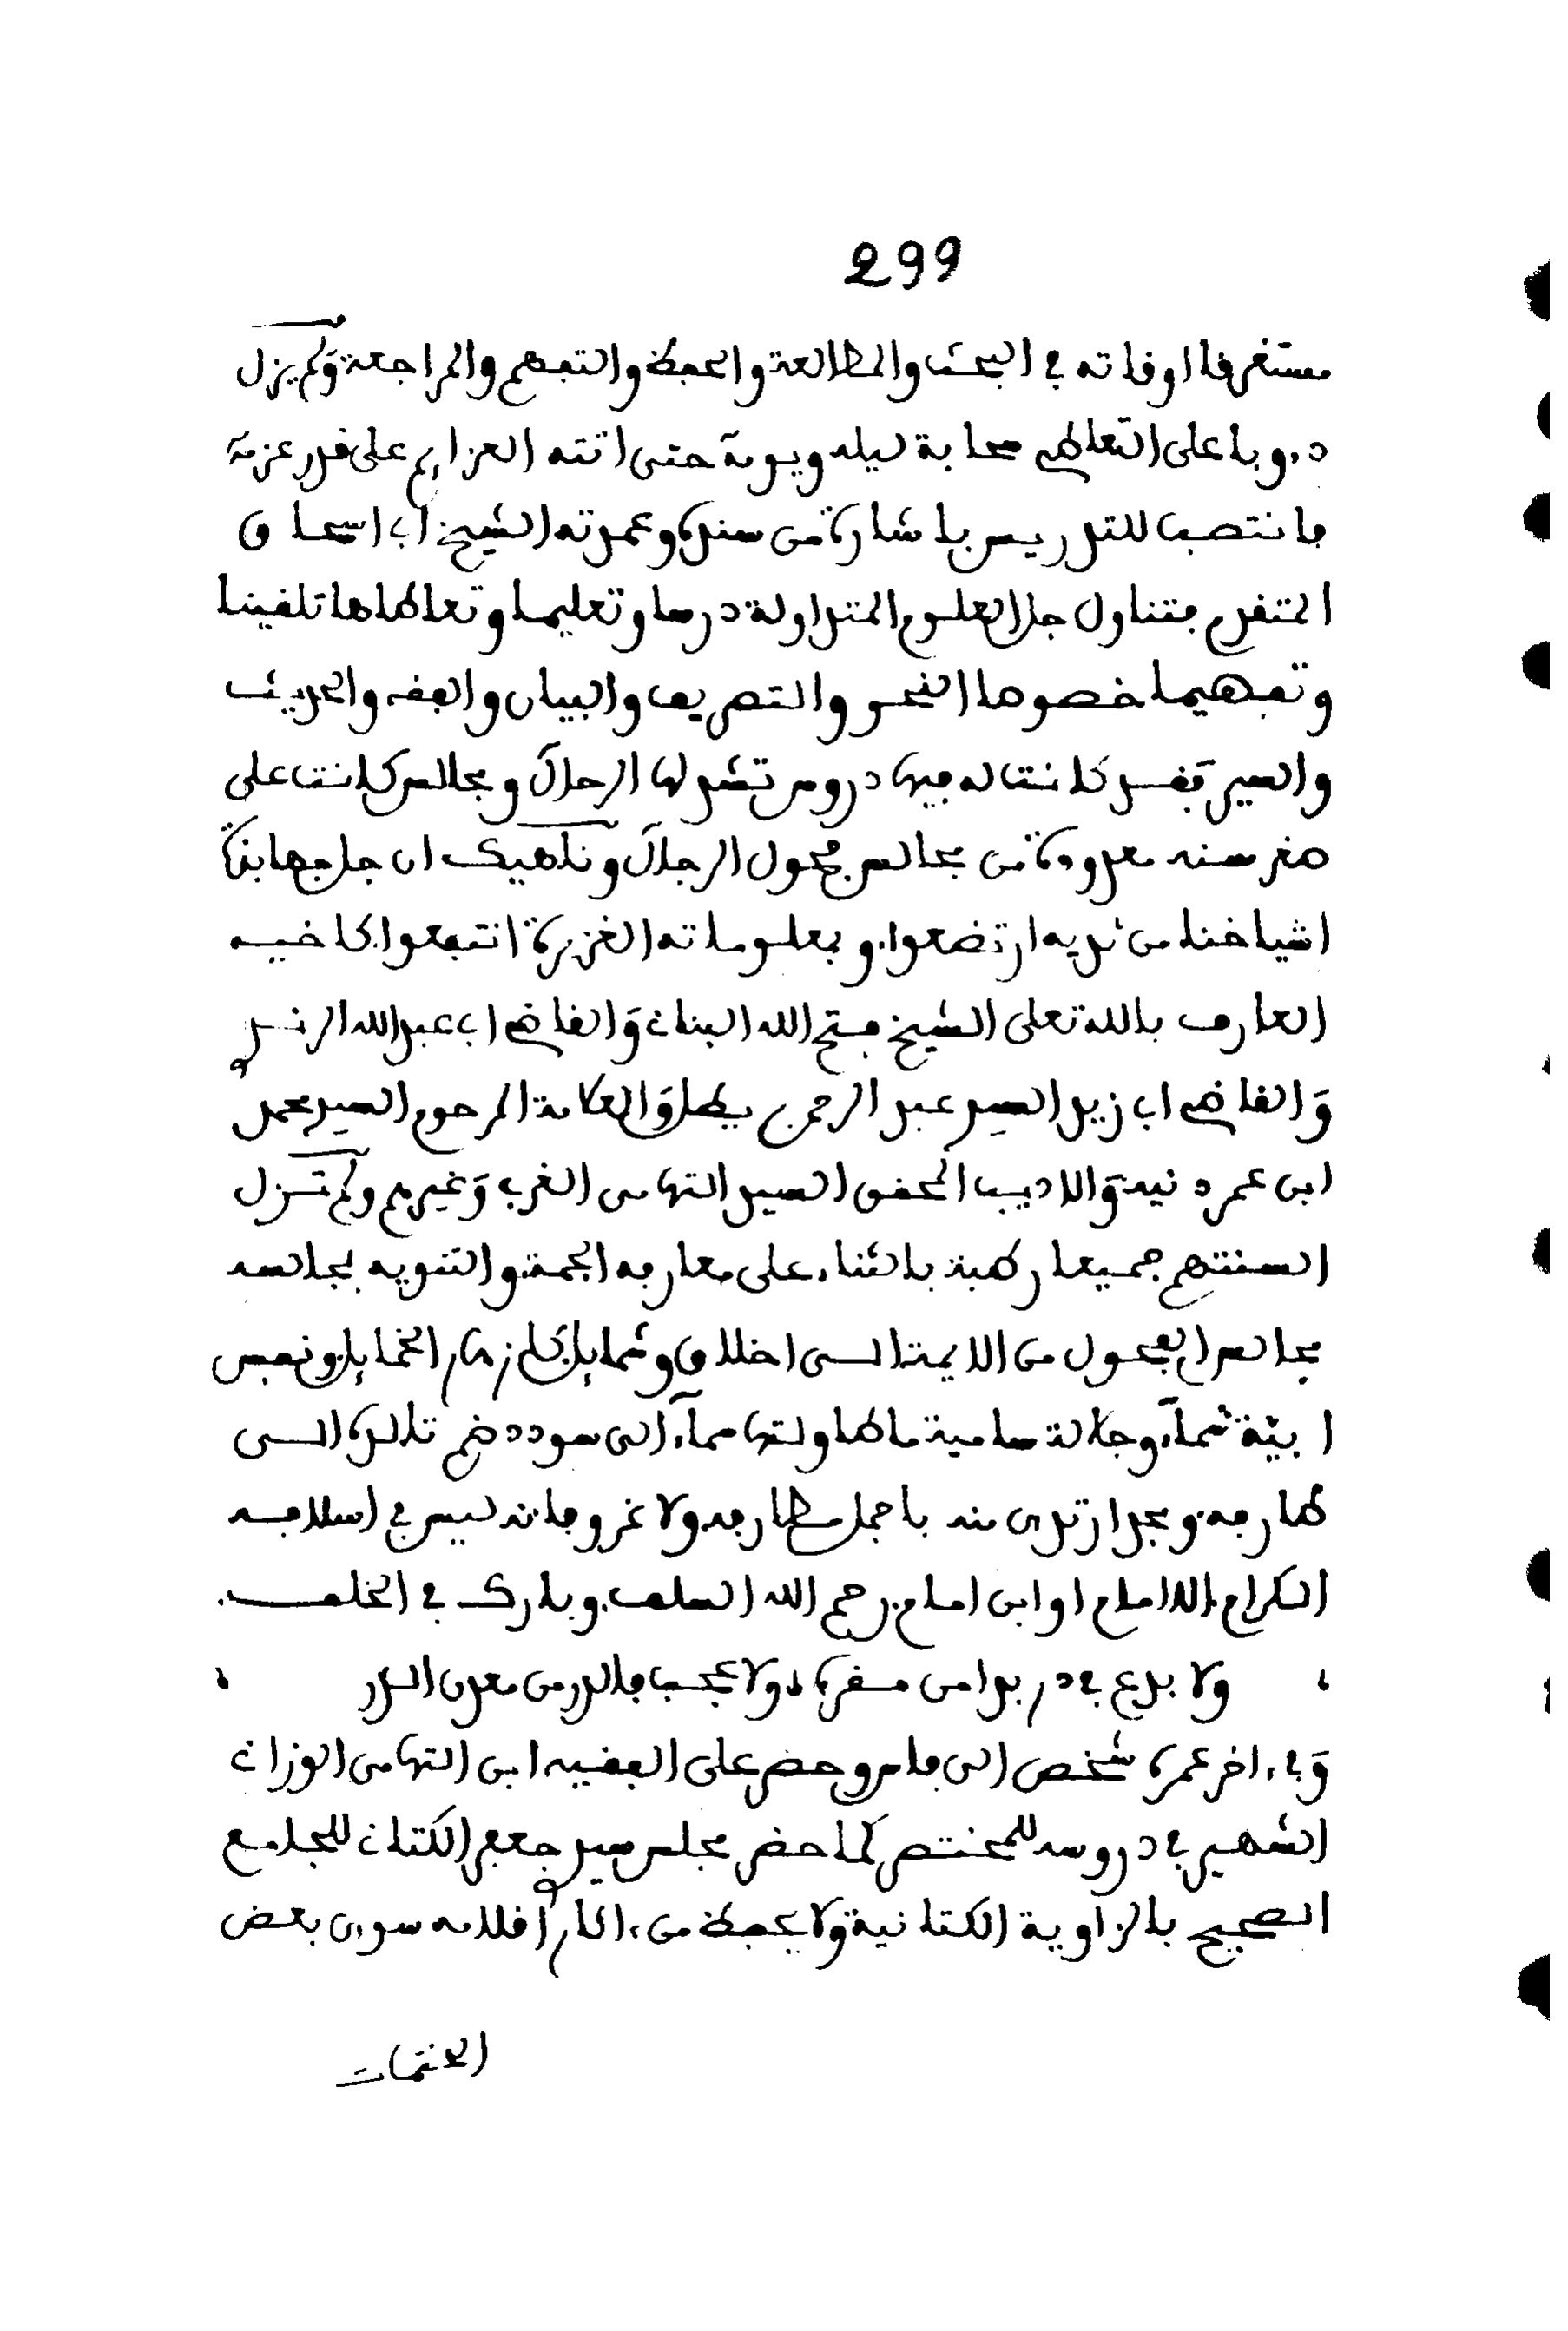 299
مستغرقا اوقاته في البحث والمطالعة والحفظ والتفهم والمراجعة ولم يزل
دءوبا على التعاطي صحابة ليله ويومه حتى اتته العزايم على قدر عزمه
فانتصب للتدريس باشارة من سنده وعمدته الشيخ ابي اسحاق
المتقدم فتناول جل العلوم المتداولة درسا وتعليما وتعاطاها تلقينا
وتفهيما خصوصا النحو والتصريف والبيان والفقه والحديث
والسير فقد كانت له فيها دروس تشد لها الرحال ومجالس كانت على
صغر سنه معدودة من مجالس فحول الرجال وناهيك ان جل جهابذة
اشياخنا من ثديه ارتضعوا. وبمعلوماته الغزيرة انتفعوا. كاخيه
العارف بالله تعلى الشيخ فتح الله البناني والقاضي ابي عبد الله الرندي
والقاضي ابي زيد السيد عبد الرحمن بريطل والعلامة المرحوم السيد محمد
ابن عمر دنية والاديب المحقق السيد التهامي الغربي وغيرهم ولم تزل
السنتهم جميعا رطبة بالثناء على معارفه الجمة والتنويه بمجالسه
مجالس الفحول من الايمة الى اخلاق وشمايل كازهار الخمايل ونفس
ابية شماء. وجلالة سامية مالها ولتهامماء. الى سودد ضم تالده الى
طارفه. ومجد ارتدى منه باجمل مطارفه. ولا غرو فانه ليس في اسلافه
الكرام. الا امام او ابن امام. رحم الله السلف. وبارك في الخلف.
، ولا بدع في در بدا من مقره ، ولا عجب فالدر من معدن الدر ،
وفي ءاخر عمره شخص الى فاس وحضر على الفقيه ابن التهامي الوزاني
الشهير في دروسه للمختصر كما حضر مجلس سيدي جعفر الكتاني للجامع
الصحيح بالزاوية الكتانية ولا يحفظ من ءاثار اقلامه سوى بعض
الختمات